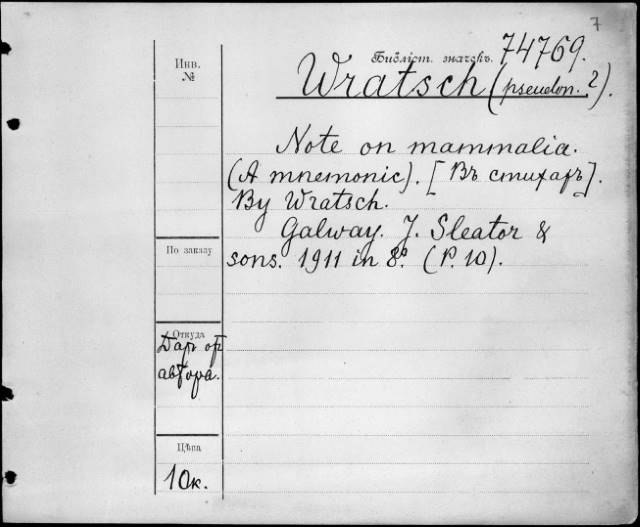 7
Инв.
№
Библіст. значекъ. 74769.
Wratsch (pseudon. ?).
Note on mammalia.
(A mnemonic). [Въ стихахъ].
By Wratsch.
Galway. J. Sleator &
sons. 1911 in 8º. (P. 10).
По заказу
Откуда
Даръ от
автора.
Цѣна
10 к.